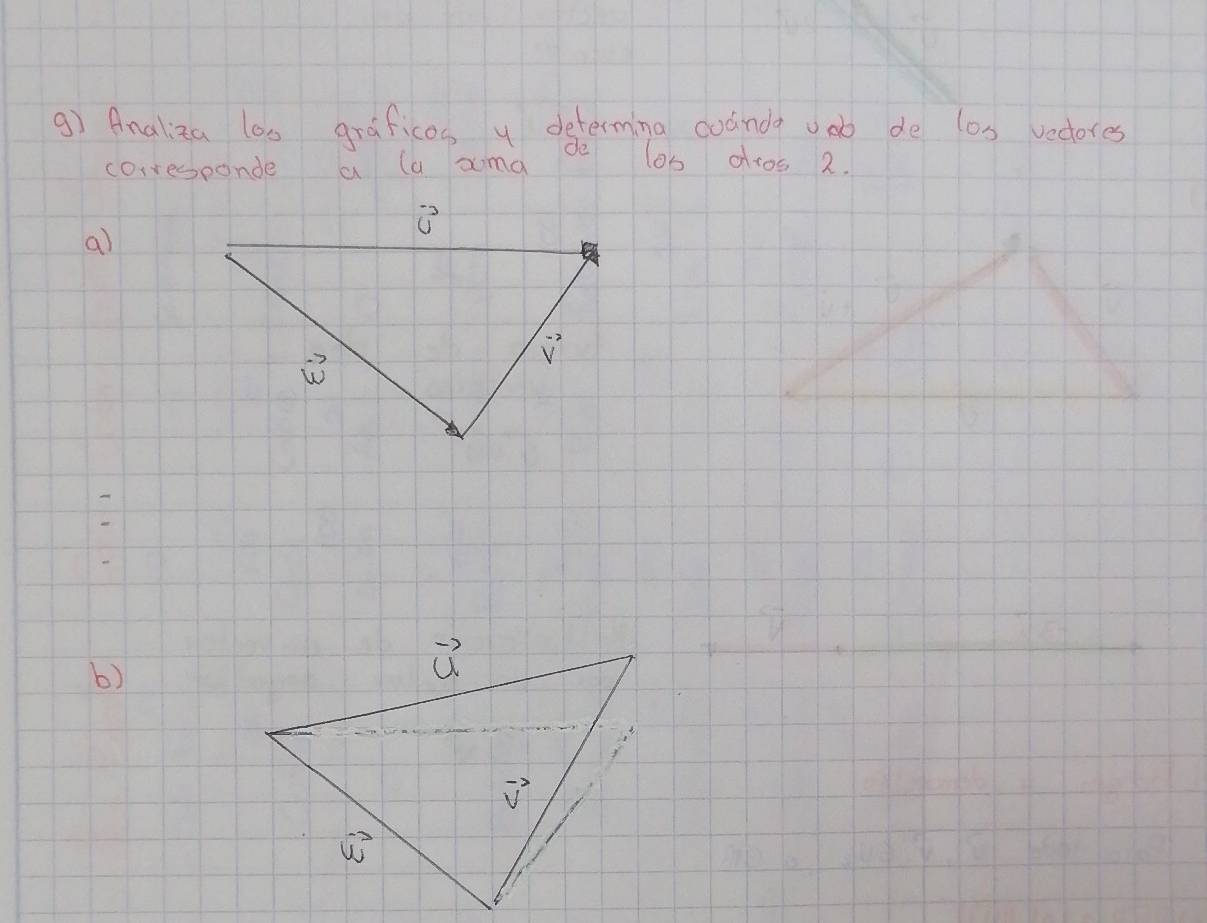 g) Analiza los gráficos y determina cuándo uno de los vectores
corresponde a la suma de los otros 2.
a)
u⃗
w⃗
v⃗
-
-
-
b)
u⃗
v⃗
w⃗